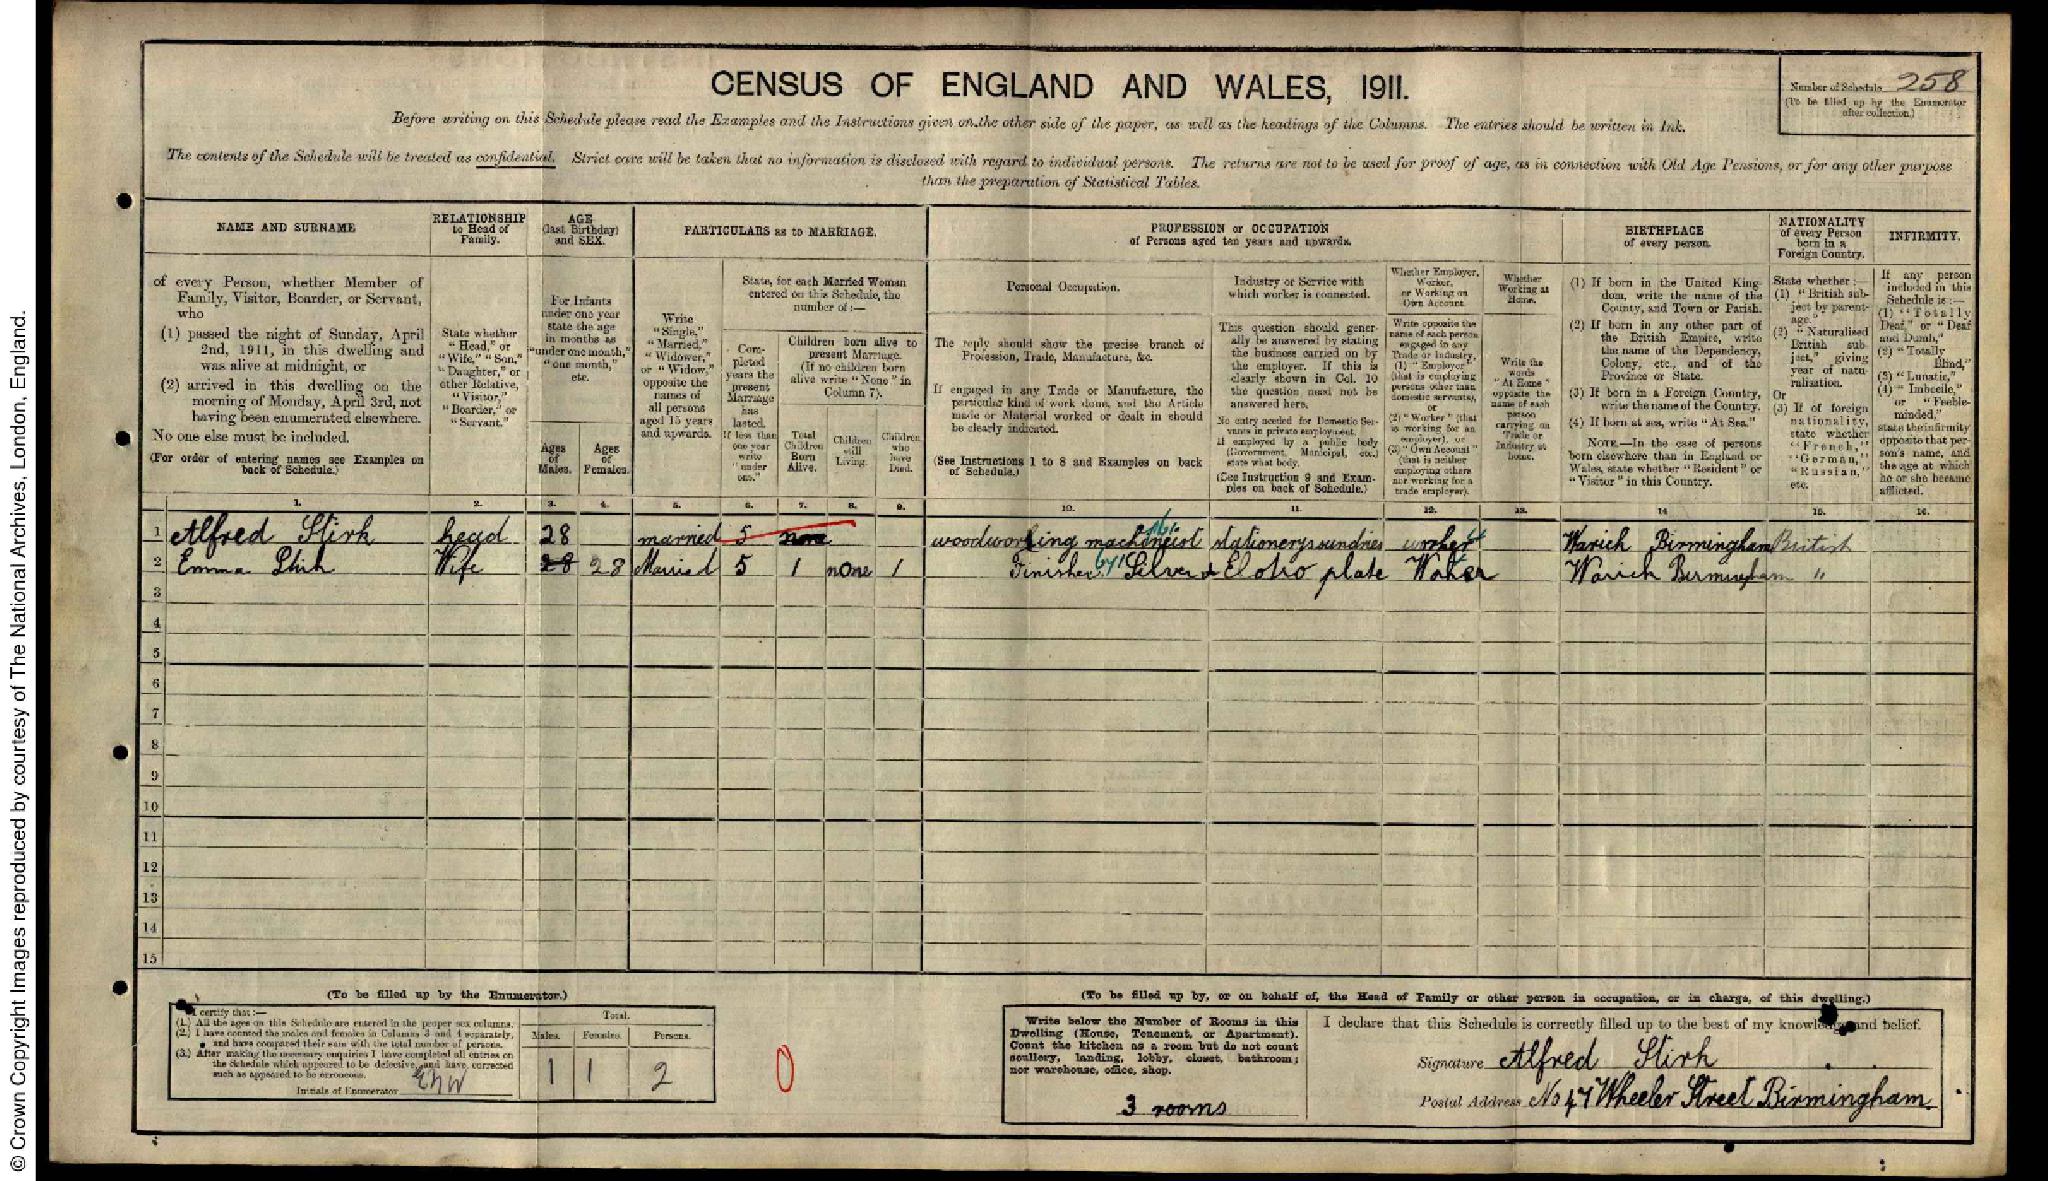 CENSUS OF ENGLAND AND WALES, 1911.
Number of Schedule 258
(To be filled up by the Enumerator
after collection.)
Before writing on this Schedule please read the Examples and the Instructions given on the other side of the paper, as well as the headings of the Columns. The entries should be written in Ink.
The contents of the Schedule will be treated as confidential. Strict care will be taken that no information is disclosed with regard to individual persons. The returns are not to be used for proof of age, as in connection with Old Age Pensions, or for any other purpose
than the preparation of Statistical Tables.
NAME AND SURNAME
of every Person, whether Member of
Family, Visitor, Boarder, or Servant,
who
(1) passed the night of Sunday, April
2nd, 1911, in this dwelling and
was alive at midnight, or
(2) arrived in this dwelling on the
morning of Monday, April 3rd, not
having been enumerated elsewhere.
No one else must be included.
(For order of entering names see Examples on
back of Schedule.)
RELATIONSHIP
to Head of
Family.
State whether
"Head," or
"Wife," "Son,"
"Daughter," or
other Relative,
"Visitor,"
"Boarder," or
"Servant."
AGE
(last Birthday)
and SEX.
For Infants
under one year
state the age
in months as
"under one month,"
"one month,"
etc.
Ages
of
Males.
Ages
of
Females.
PARTICULARS as to MARRIAGE.
Write
"Single,"
"Married,"
"Widower,"
or "Widow,"
opposite the
names of
all persons
aged 15 years
and upwards.
State, for each Married Woman
entered on this Schedule, the
number of:—
Com-
pleted
years the
present
Marriage
has
lasted.
If less than
one year
write
"under
one."
Children born alive to
present Marriage.
(If no children born
alive write "None" in
Column 7).
Total
Children
Born
Alive.
Children
still
Living.
Children
who
have
Died.
PROFESSION or OCCUPATION
of Persons aged ten years and upwards.
Personal Occupation.
The reply should show the precise branch of
Profession, Trade, Manufacture, &c.
If engaged in any Trade or Manufacture, the
particular kind of work done, and the Article
made or Material worked or dealt in should
be clearly indicated.
(See Instructions 1 to 8 and Examples on back
of Schedule.)
Industry or Service with
which worker is connected.
This question should gener-
ally be answered by stating
the business carried on by
the employer. If this is
clearly shown in Col. 10
the question need not be
answered here.
No entry needed for Domestic Ser-
vants in private employment.
If employed by a public body
(Government, Municipal, etc.)
state what body.
(See Instruction 9 and Exam-
ples on back of Schedule.)
Whether Employer,
Worker,
or Working on
Own Account.
Write opposite the
name of each person
engaged in any
Trade or Industry,
(1) "Employer"
(that is employing
persons other than
domestic servants),
or
(2) "Worker" (that
is working for an
employer), or
(3) "Own Account"
(that is neither
employing others
nor working for a
trade employer).
Whether
Working at
Home.
Write the
words
"At Home"
opposite the
name of each
person
carrying on
Trade or
Industry at
home.
BIRTHPLACE
of every person.
(1) If born in the United King-
dom, write the name of the
County, and Town or Parish.
(2) If born in any other part of
the British Empire, write
the name of the Dependency,
Colony, etc., and of the
Province or State.
(3) If born in a Foreign Country,
write the name of the Country.
(4) If born at sea, write "At Sea."
NOTE.—In the case of persons
born elsewhere than in England or
Wales, state whether "Resident" or
"Visitor" in this Country.
NATIONALITY
of every Person
born in a
Foreign Country.
State whether:—
(1) "British sub-
ject by parent-
age,"
(2) "Naturalised
British sub-
ject," giving
year of natu-
ralisation.
Or
(3) If of foreign
nationality,
state whether
"French,"
"German,"
"Russian,"
etc.
INFIRMITY.
If any person
included in this
Schedule is:—
(1) "Totally
Deaf," or "Deaf
and Dumb,"
(2) "Totally
Blind,"
(3) "Lunatic,"
(4) "Imbecile,"
or "Feeble-
minded,"
state the infirmity
opposite that per-
son's name, and
the age at which
he or she became
afflicted.
1. 2. 3. 4. 5. 6. 7. 8. 9. 10. 11. 12. 13. 14 15. 16.
1 Alfred Stirk head 28 married 5 none woodworking machoneist stationery sundries worker Warick Birmingham British
2 Emma Stirk Wife 28 28 Married 5 1 none 1 Finisher Silver & Elctro plate Worker Warick Birmingham "
3
4
5
6
7
8
9
10
11
12
13
14
15
(To be filled up by the Enumerator.)
I certify that:—
(1.) All the ages on this Schedule are entered in the proper sex columns.
(2.) I have counted the males and females in Columns 3 and 4 separately,
and have compared their sum with the total number of persons.
(3.) After making the necessary enquiries I have completed all entries on
the Schedule which appeared to be defective, and have corrected
such as appeared to be erroneous.
Initials of Enumerator
Total.
Males. Females. Persons.
1 1 2
0
(To be filled up by, or on behalf of, the Head of Family or other person in occupation, or in charge, of this dwelling.)
Write below the Number of Rooms in this
Dwelling (House, Tenement, or Apartment).
Count the kitchen as a room but do not count
scullery, landing, lobby, closet, bathroom;
nor warehouse, office, shop.
3 rooms
I declare that this Schedule is correctly filled up to the best of my knowledge and belief.
Signature Alfred Stirk
Postal Address No 47 Wheeler Street Birmingham.
© Crown Copyright Images reproduced by courtesy of The National Archives, London, England.